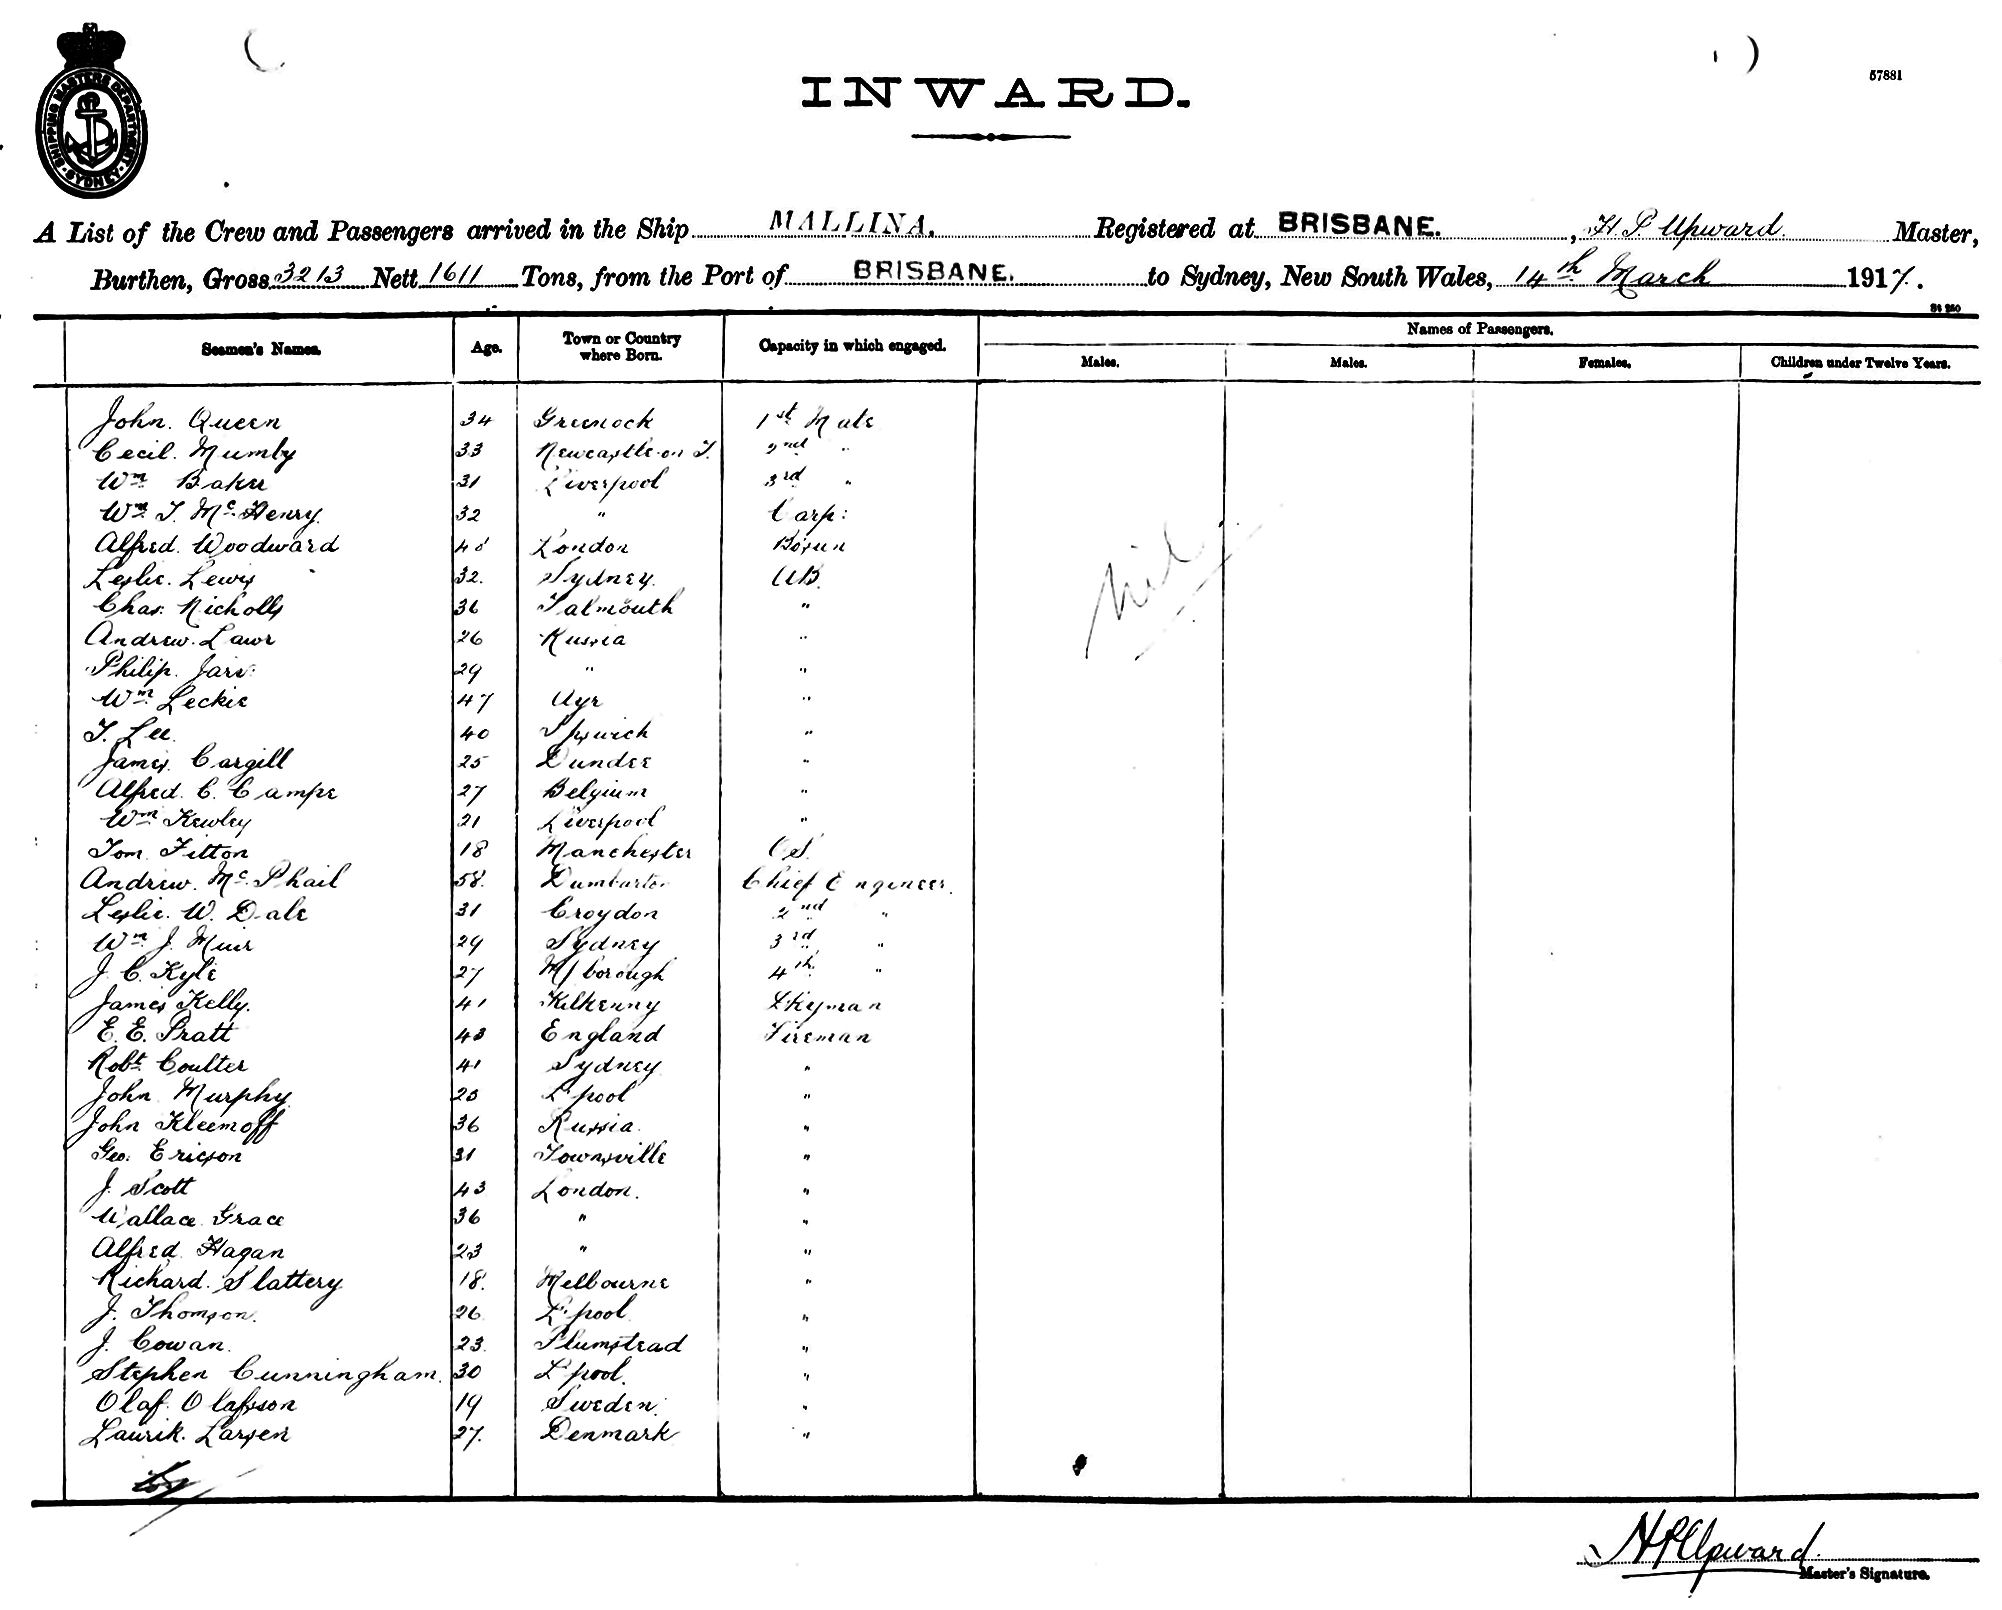 SHIPPING MASTERS DEPARTMENT SYDNEY
57881
INWARD.
A List of the Crew and Passengers arrived in the Ship MALLINA. Registered at BRISBANE., H. P. Upward. Master,
Burthen, Gross 3213 Nett 1611 Tons, from the Port of BRISBANE. to Sydney, New South Wales, 14th March 1917.
Seamen's Names. Age. Town or Country where Born. Capacity in which engaged. Names of Passengers.
Males. Males. Females. Children under Twelve Years.
John. Queen 34 Greenock 1st Mate
Cecil. Mumby 33 Newcastle-on T. 2nd "
Wm Baker 31 Liverpool 3rd "
Wm T. Mc Henry. 32 " Carp:
Alfred. Woodward 48 London Bosun
Leslie. Lewis 32. Sydney. AB.
Chas. Nicholls 36 Falmouth "
Andrew. Lawr 26 Russia "
Philip. 29 " "
Wm Leckie 47 Ayr "
T. Lee. 40 Ipswich "
James. Cargill 25 Dundee "
Alfred. C. Campe 27 Belgium "
Wm Kewley 21 Liverpool "
Tom Fitton 18 Manchester OS.
Andrew. Mc Phail 58. Dumbarton Chief Engineer.
Leslie. W. Dale 31 Croydon 2nd "
Wm J. Muir 29 Sydney 3rd "
J. C. Kyle 27 M/borough 4th "
James Kelly. 41 Kilkenny Dkyman
E. E. Pratt 43 England Fireman
Robt Coulter 41 Sydney "
John Murphy 23 L'pool "
John Kleemoff 36 Russia. "
Geo. Ericson 31 Townsville "
J. Scott 43 London. "
Wallace Grace 36 " "
Alfred Hagan 23 " "
Richard. Slattery 18. Melbourne "
J. Thomson. 26 L'pool "
J. Cowan. 23. Plumstead "
Stephen Cunningham. 30 L'pool. "
Olaf. Olafsson 19 Sweden. "
Laurik. Larsen 27. Denmark "
Nil
H P Upward.
Master's Signature.